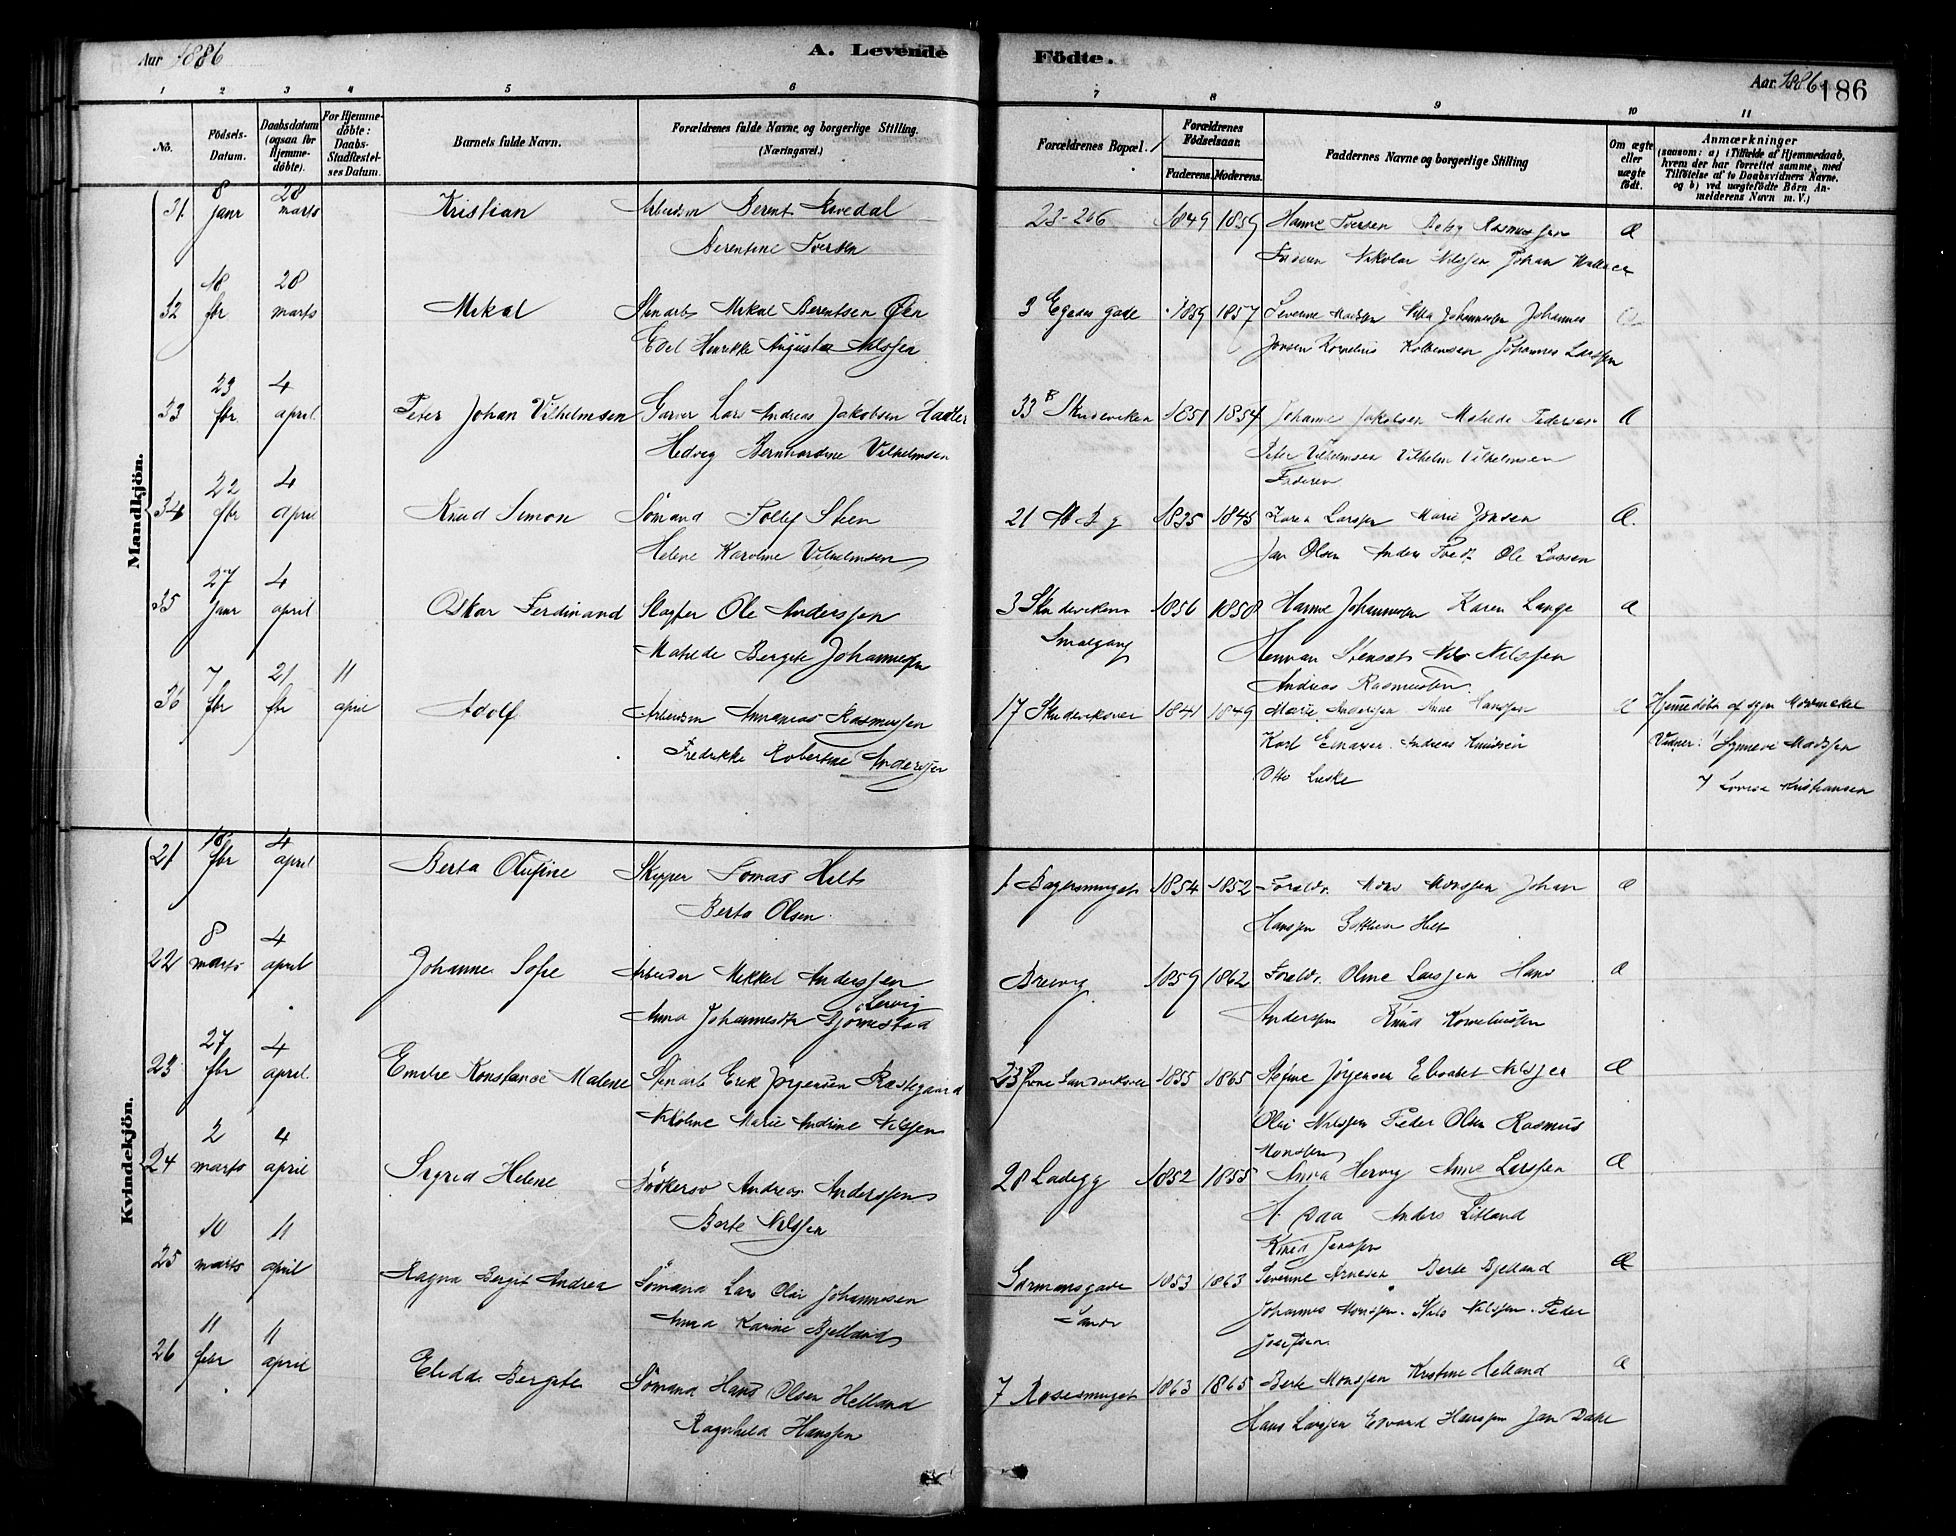 Aar 1886
A. Levende
Födte.
Aar 1886
186
1 2 3 4 5 6 7 8 9 10 11
No.
Födsels-Datum.
Daabsdatum (ogsaa for Hjemme-döbte).
For Hjemme-döbte: Daabs-Stadfæstel-ses Datum.
Barnets fulde Navn.
Forældrenes fulde Navne, og borgerlige Stilling.
(Næringsvei.)
Forældrenes Bopæl.
Forældrenes Födselsaar.
Faderens. Moderens.
Faddernes Navne og borgerlige Stilling
Om ægte eller uægte födt.
Anmærkninger
(saasom: a) i Tilfælde af Hjemmedaab, hvem der har forrettet samme, med Tilföielse af to Daabsvidners Navne. og b) ved uægtefödte Börn An-melderens Navn m. V.)
Mandkjön.
31 8 janr 28 marts Kristian Arbeidsm Berent
Berentine Iversen
23-206 1849 1859 Hanne Iversen Rasmussen Æ
Faderen Nikolai Nilssen Johan
32 18 fbr 28 marts Mikal Stenarb Mikal Berentsen Øen
Edel Henrikke Augusta Nilssen
3 Egenes gade 1859 1857 Severine Madsen Johannesen Johannes
Jonsen Kornelius Johannes Larssen
33 23 fbr. 4 april. Peter Johan Vilhelmsen Garver Lars Andreas Jakobsen Hadler
Hedvig Bernhardine Vilhelmsen
33 B Skudeviken 1851 1854 Johanne Jakobsen Matilde Pedersen Æ
Peter Vilhelmsen Vilhelm Vilhelmsen
Faderen
34 22 fbr 4 april Knud Simon Sömand Tollef Steen
Helene Karoline Vilhelmsen
21 1835 1845 Karen Larssen Marie Jonsen Æ.
Jan Olsen Anders Tvedt Ole Larsen
35 27 Janr 4 april Oskar Ferdinand Slagter Ole Anderssen
Matilde Bergite Johannessen
3 Skudevikens 1856 1858 Hanne Johannesen Karen Lange Æ
Smalgang
Herman Stensøt Nils Nilssen
Andreas Rasmussen
36 7 fbr 21 fbr 11 april Adolf Arbeidsm Annanias Rasmussen
Fredrikke Robertine Anderssen
17 Skudeviksvei 1841 1849 Marie Anderssen Anne Hanssen Æ Hjemmedöbt af
Karl Andreas Knudsen
Vidner: Synneve Madssen
Otto Luske
Lovise Kristiansen
Kvindekjön.
21 fbr 4 april Berta Olufine Skipper Tomas Helt
Berta Olsen
1 Bagersmuget 1854 1852 Foreldr. Mons Monssen Johan Æ
Hanssen Helt
22 8 marts 4 april Johanne Sofie Arbeider Mikkel Anderssen
Lervig
Anna Johannesdtr Gjömestad
Breivig 1859 1862 Foreldr. Oline Larssen Hans Æ
Anderssen Knud Korneliussen
23 27 fbr 4 april. Emilie Konstanse Malene Stenarb Erik Jörgensen Ræstegaard
Nikoline Marie Andrine Nilssen
23 Övre Sandviksvei 1855 1865 Stefine Jörgensen Elisabet Nilssen Æ
Olai Nilssen Peder Olsen Rasmus
Monssen
24 2 marts 4 april Sigrid Helene Andreas Anderssen
Berte Nilssen
28 Ladegg 1852 1855 Anna Hervig Anne Larssen Æ
H. Daa Anders
Knud Janssen
25 10 marts 11 april Ragna Bergit Andrea Sömand Lars Olai Johannesen
Anna Karine Bjelland
Garmansgade 1853 1863 Severine Arnesen Berte Bjelland Æ
Johannes Monssen. Nils Nilssen. Peder
Josefsen
26 11 febr 11 april Elida Bergite Sömand Hans Olsen Helland
Ragnhild Hanssen
7 Rosesmuget 1863 1865 Berte Monssen Kristine Helland Æ
Hans Larssen Edvard Hanssen Jan Dahl